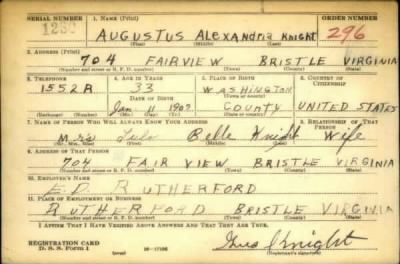 SERIAL NUMBER 1. NAME (Print) ORDER NUMBER
AUGUSTUS ALEXANDRIA KNIGHT 296
(First) (Middle) (Last)
2. ADDRESS (Print)
704 FAIRVIEW BRISTLE VIRGINIA
(Number and street or R. F. D. number) (Town) (County) (State)
3. TELEPHONE 4. AGE IN YEARS 5. PLACE OF BIRTH 6. COUNTRY OF CITIZENSHIP
1552R 33 WASHINGTON
DATE OF BIRTH
Jan 11 1907 COUNTY UNITED STATES
(Mo.) (Day) (Yr.)
7. NAME OF PERSON WHO WILL ALWAYS KNOW YOUR ADDRESS 8. RELATIONSHIP OF THAT PERSON
Mrs Lula Belle Knight Wife
(Mr., Mrs., Miss) (First) (Middle) (Last)
9. ADDRESS OF THAT PERSON
704 FAIR VIEW BRISTLE VIRGINIA
(Number and street or R. F. D. number) (Town) (County) (State)
10. EMPLOYER'S NAME
E.D. RUTHERFORD
11. PLACE OF EMPLOYMENT OR BUSINESS
RUTHERFORD BRISTLE VIRGINIA
(Number and street or R. F. D. number) (Town) (County) (State)
I AFFIRM THAT I HAVE VERIFIED ABOVE ANSWERS AND THAT THEY ARE TRUE.
REGISTRATION CARD
D. S. S. Form 1
Knight
(Registrant's signature)